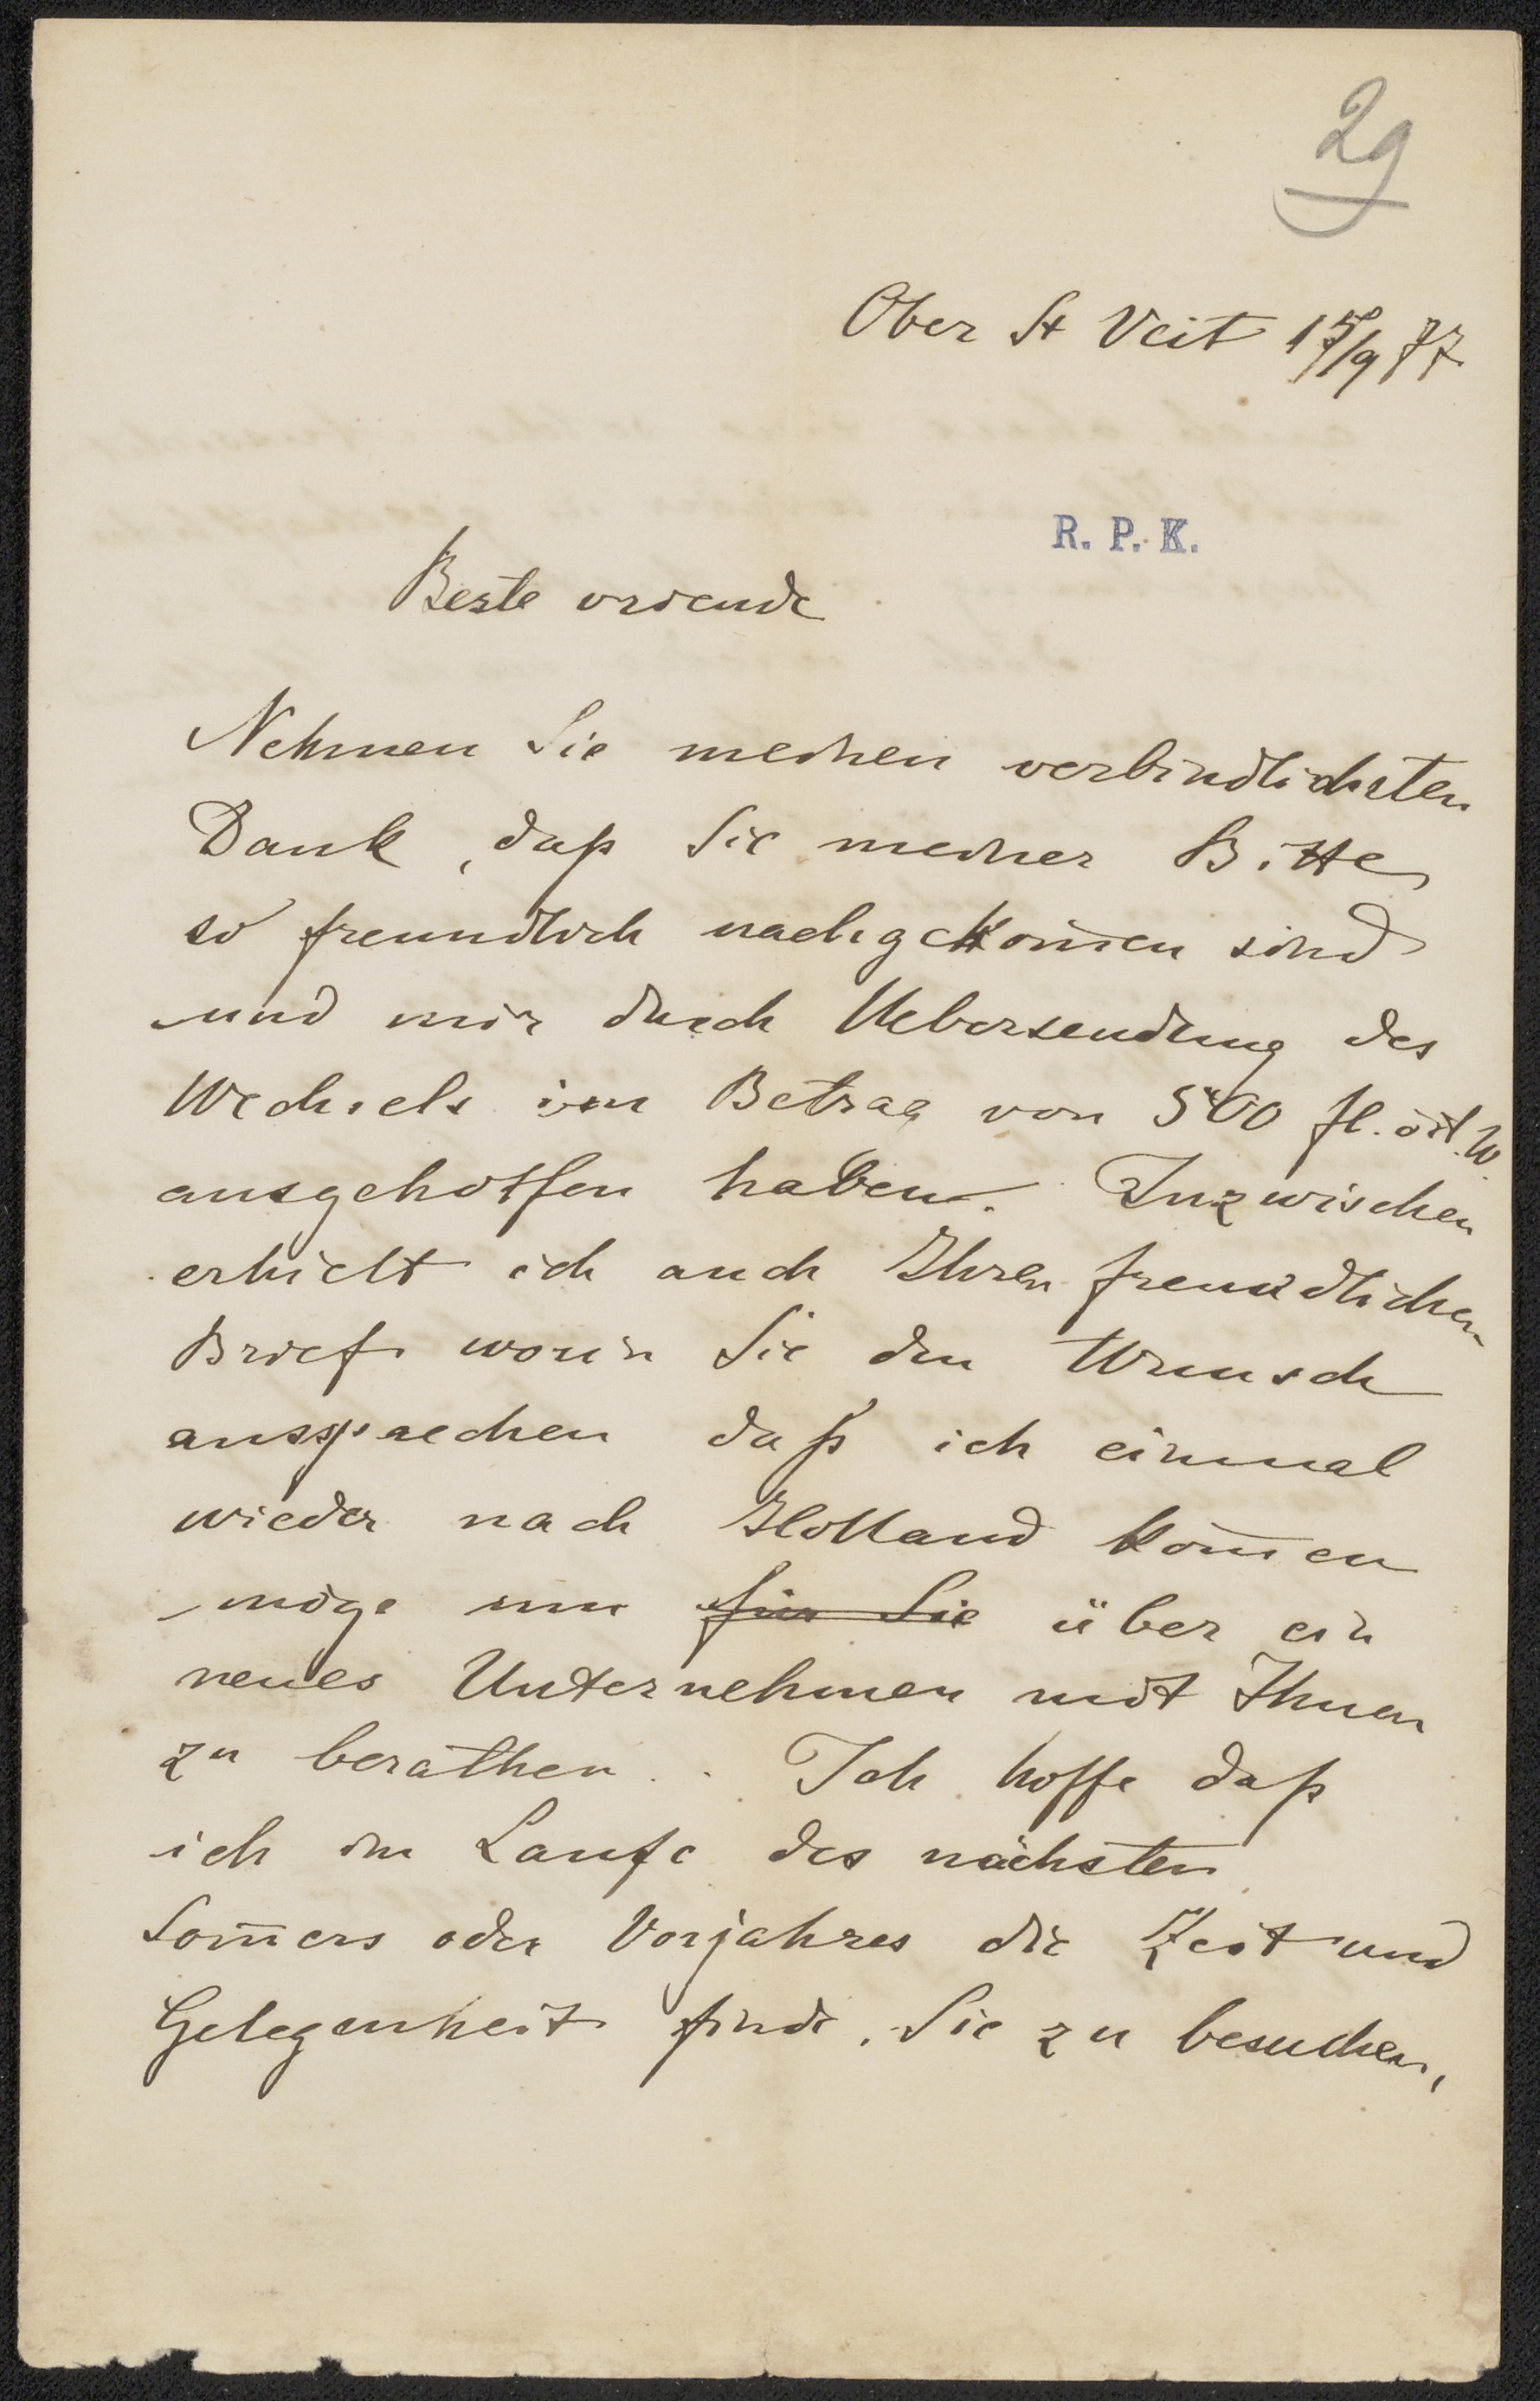 29
Ober St Veit 15/9 77
R. P. K.
Beste vriende
Nehmen Sie meinen verbindlichsten
Dank, daß Sie meiner Bitte
so freundlich nachgekom̄en sind
und mir durch Uebersendung des
Wechsels im Betrag von 500 fl. öst. W.
ausgeholfen haben. Inzwischen
erhielt ich auch Ihren freundlichen
Brief worin Sie den Wunsch
aussprechen daß ich einmal
wieder nach Holland kom̄en
möge um für Sie über ein
neues Unternehmen mit Ihnen
zu berathen. Ich hoffe daß
ich im Laufe des nächsten
Som̄ers oder Vorjahres die Zeit und
Gelegenheit finde, Sie zu besuchen,